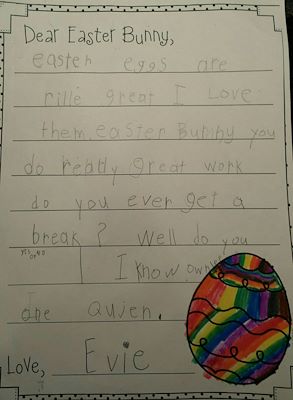 Dear Easter Bunny,
easter eggs are
rille great I Love
them. easter Bunny you
do really great work
do you ever get a
break? Well do you
yes or no
I know
are Quien.
Love, Evie